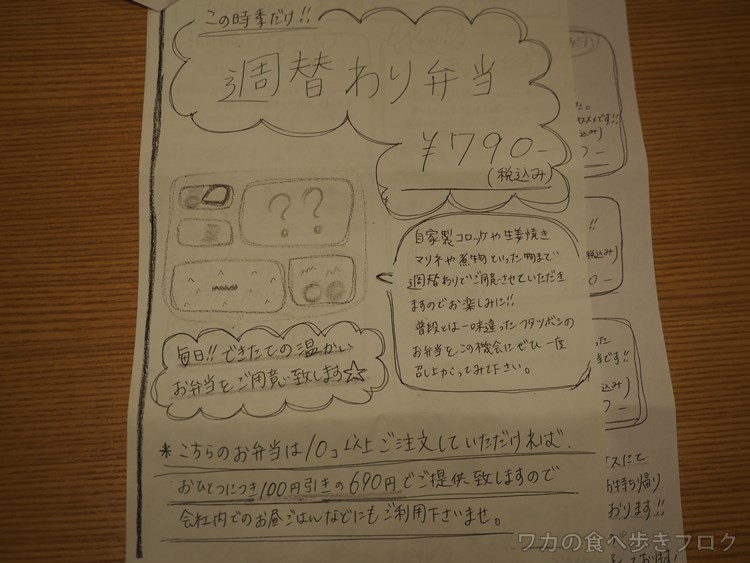 この時季だけ!!
週替わり弁当
¥790-
(税込み)
??
自家製コロッケや生姜焼き
マリネや煮物といった物まで
週替わりでご用意させていただき
ますのでお楽しみに!!
普段とは一味違ったフタツボシの
お弁当をこの機会にぜひ一度
召し上がってみて下さい。
毎日!!できたての温かい
お弁当をご用意致します☆
*こちらのお弁当は10コ以上ご注文していただければ、
おひとつにつき100円引きの690円でご提供致しますので
会社内でのお昼ごはんなどにもご利用下さいませ。
です!!
込み)
!!
税込み)
0-
った
です!!
込み)
スにて
お持ち帰り
おります!!
ワカの食べ歩きブログ